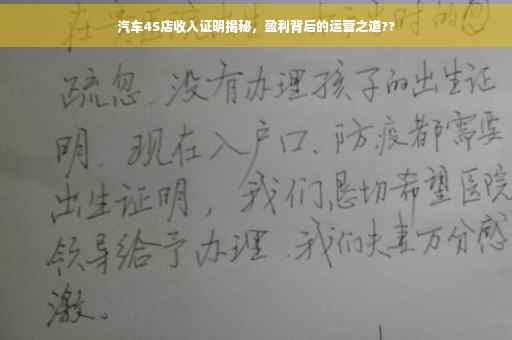 汽车4S店收入证明揭秘，盈利背后的运营之道??
疏忽、没有办理孩子的出生证
明、现在入户口、防疫都需要
出生证明，我们恳切希望医院
领导给予办理、我们夫妻万分感
激。